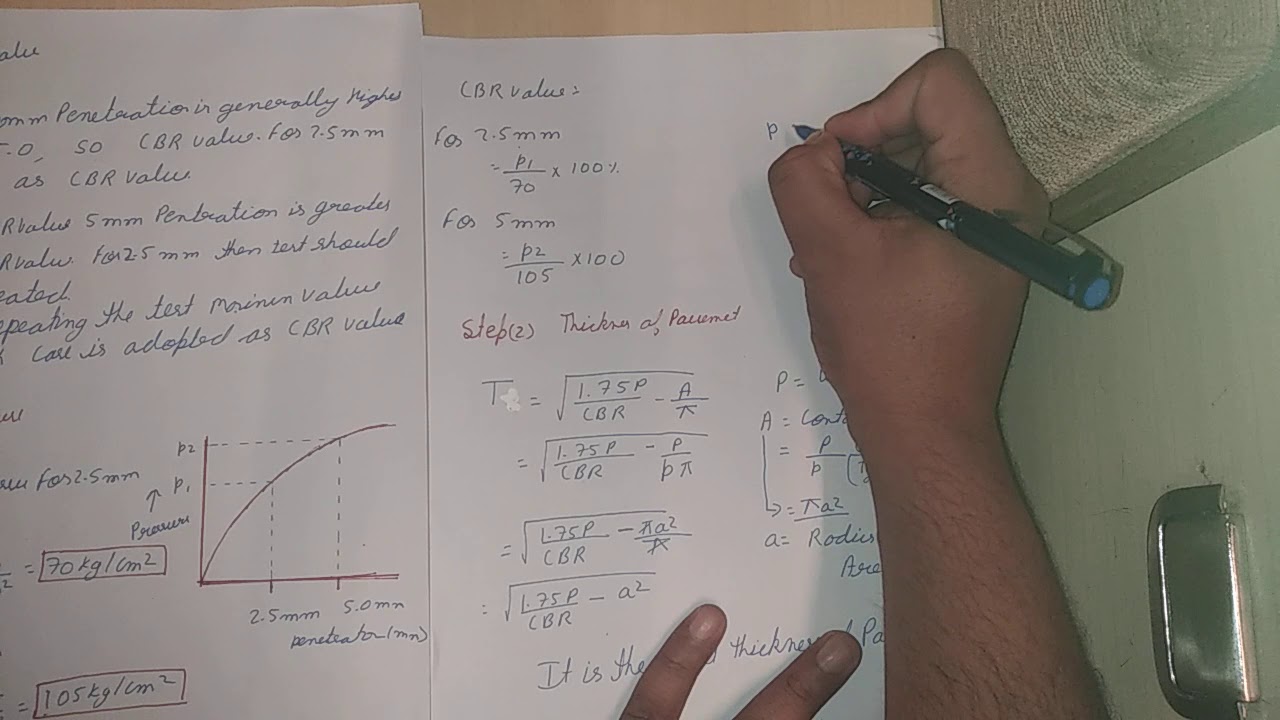 alu
0mm Penetration is generally Higher
T.0, so CBR value. For 2.5mm
as CBR value
R Value 5mm Pentration is greater
R value. For 2.5 mm then test should
eated.
epeating the test Morinen value
Case is adopted as CBR value
ure For 2.5mm
= 70 kg/cm2
= 105 kg/cm2
p2
p1
↑
Pressure
2.5mm 5.0mn
penetrator (mn)
CBR value:
For 2.5mm
= p1/70 × 100%
For 5mm
= p2/105 × 100
Step(2) Thicknes of Pavemet
T = √1.75P/CBR - A/π
= √1.75P/CBR - P/pπ
= √1.75P/CBR - πa2/π
= √1.75P/CBR - a2
It is the thicknes of Pa
p
P =
A = Conta
= P/p
↳ = πa2
a = Radius
Are